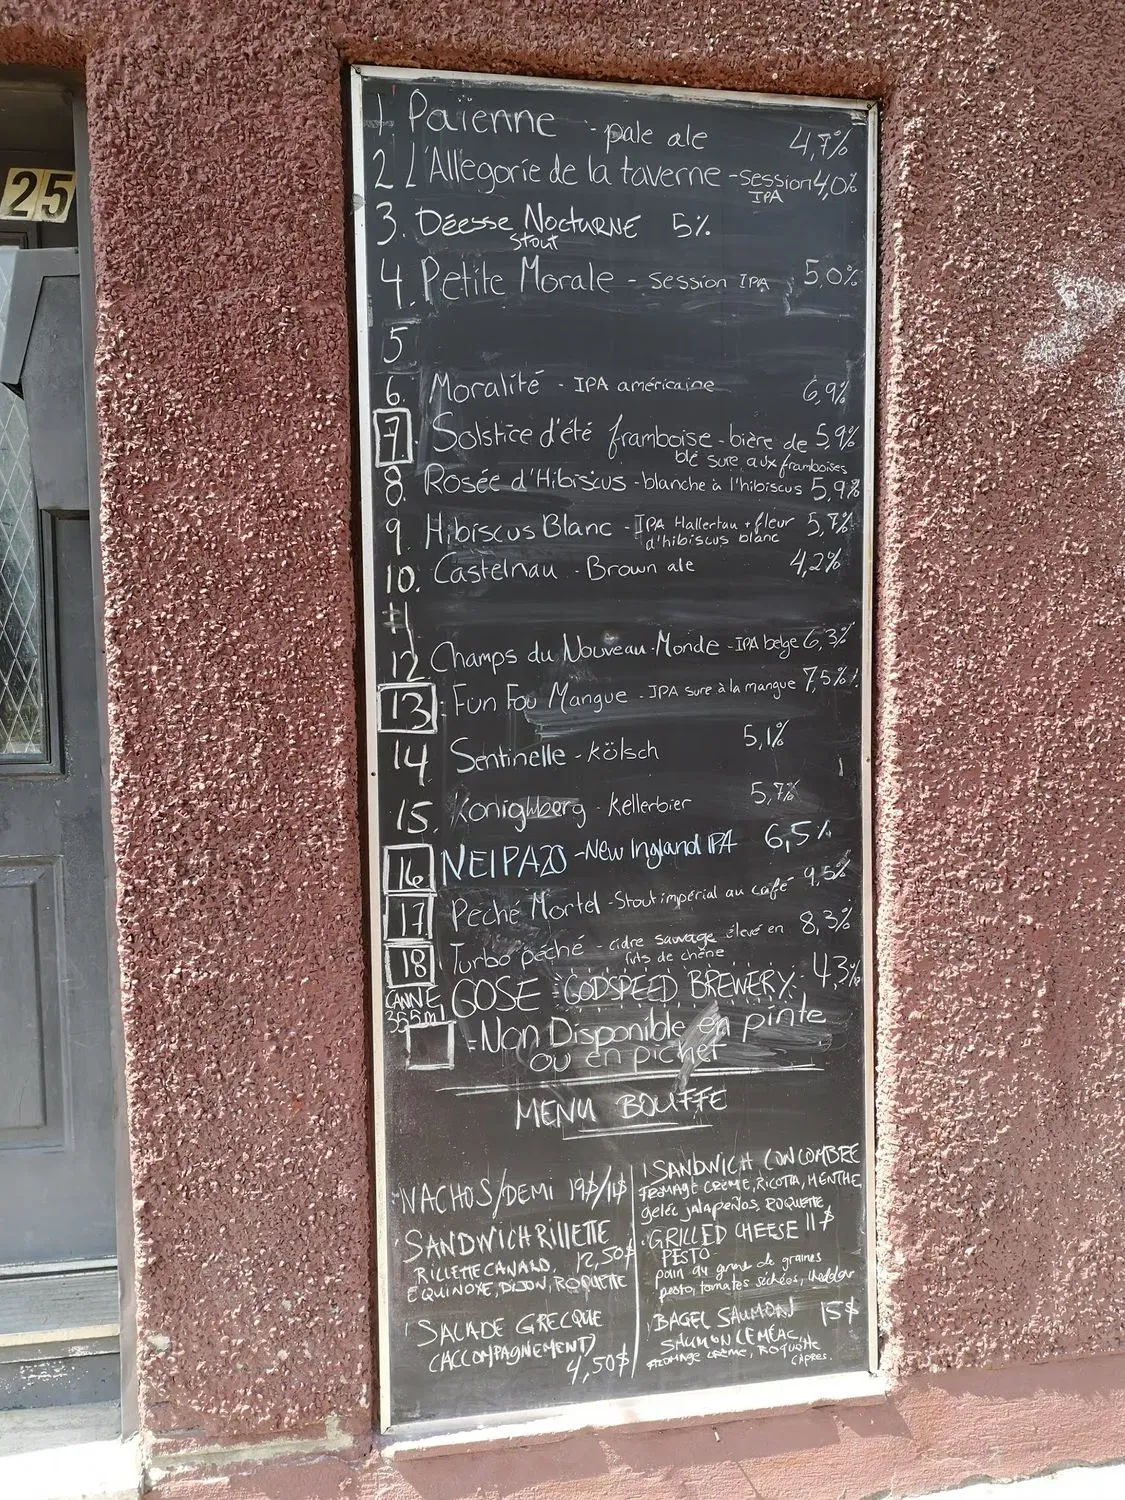 25
1. Païenne - pale ale 4,7%
2 L'Allégorie de la taverne - session 4,0%
IPA
3. Déesse Nocturne 5%
stout
4. Petite Morale - session IPA 5,0%
5
6. Moralité - IPA américaine 6,9%
7. Solstice d'été framboise - bière de 5,9%
blé sure aux framboises
8. Rosée d'Hibiscus - blanche à l'hibiscus 5,9%
9. Hibiscus Blanc - IPA Hallertau + fleur 5,7%
d'hibiscus blanc
10. Castelnau - Brown ale 4,2%
11
12 Champs du Nouveau-Monde - IPA belge 6,3%
13: Fun Fou Mangue - IPA sure à la mangue 7,5%!
14 Sentinelle - Kölsch 5,1%
15. Konighberg - Kellerbier 5,7%
16 NEIPA20 - New Ingland IPA 6,5%
17 Péché Mortel - Stout impérial au café 9,5%
18 Turbo péché - cidre sauvage élevé en 8,3%
fûts de chêne
CANNE 355ml GOSE GODSPEED BREWERY. 4,3%
= Non Disponible en pinte
ou en pichet
MENU BOUFFE
NACHOS/DEMI 19$/14$
SANDWICH RILLETTE
RILLETTE CANARD, 12,50$
EQUINOXE, DIJON, ROQUETTE
SALADE GRECQUE
(ACCOMPAGNEMENT)
4,50$
SANDWICH CONCOMBRE
FROMAGE CRÈME, RICOTTA, MENTHE,
gelée jalapeños, ROQUETTE
GRILLED CHEESE 11$
PESTO
pain au grand de graines
pesto, tomates séchées, cheddar
BAGEL SAUMON 15$
SAUMON LEMÉAC,
FROMAGE CRÈME, ROQUETTE
CÂPRES.